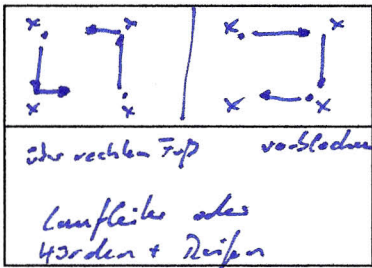 x x x x
x x x x
über rechten Fuß vorblocken
Laufleiter oder
Hürden + Reifen